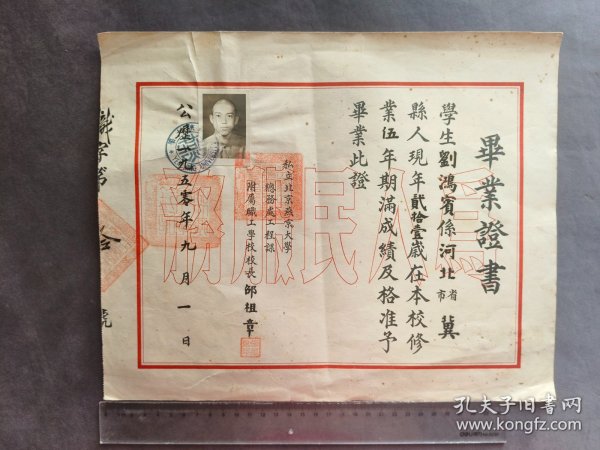 畢業證書
學生劉鴻賓係河北省市冀
縣人現年貳拾壹歲在本校修
業伍年期滿成績及格准予
畢業此證
私立北京燕京大學
總務處工程課
附屬職工學校校長 邱祖章
公曆一九五零年九月一日
為人民服務
字第
號
孔夫子旧书网
www.kongfz.com